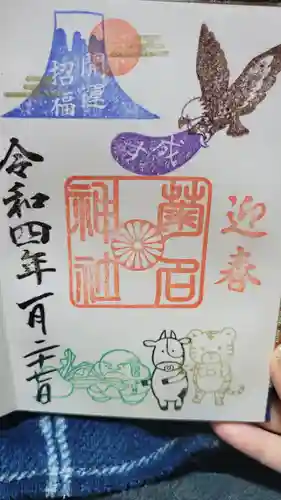 開運
招福
迎春
菊名
神社
令和四年一月二十七日